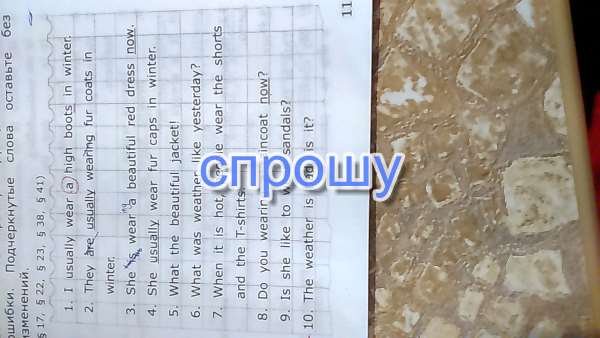 ошибки. Подчеркнутые слова оставьте без
изменений.
§ 17, § 22, § 23, § 38, § 41)
1. I usually wear (a) high boots in winter.
2. They are usually wearing fur coats in
winter.
3. She is wear a beautiful red dress now.
4. She usually wear fur caps in winter.
5. What the beautiful jacket!
6. What was weather like yesterday?
7. When it is hot, we wear the shorts
and the T-shirts.
8. Do you wearin raincoat now?
9. Is she like to sandals?
10. The weather is is it?
11
спрошу